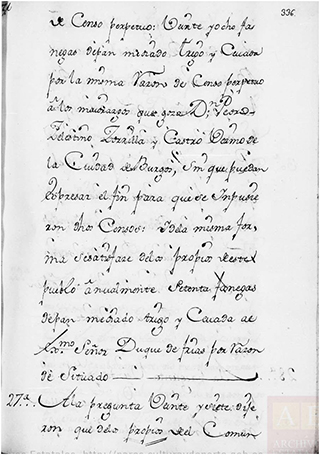 336
de Censo perpetuo: Veinte y ocho fa
negas de pan mediado trigo y Cevada
por la misma Razon de Censo perpetuo
a los maiorazgos que goza Dn
Zorrilla y Castro Vecino de
la Ciudad de Burgos, sin que puedan
expresar el fin para que se Impusie
ron dhos Censos: Y de la misma for
ma se satisface de los propios de este
pueblo annualmente Setenta fanegas
de pan mediado trigo y Cevada al
exmo Señor Duque de frias por Razon
de Situado
27ª A la pregunta Veinte y siete dije
ron que de los propios del Comun